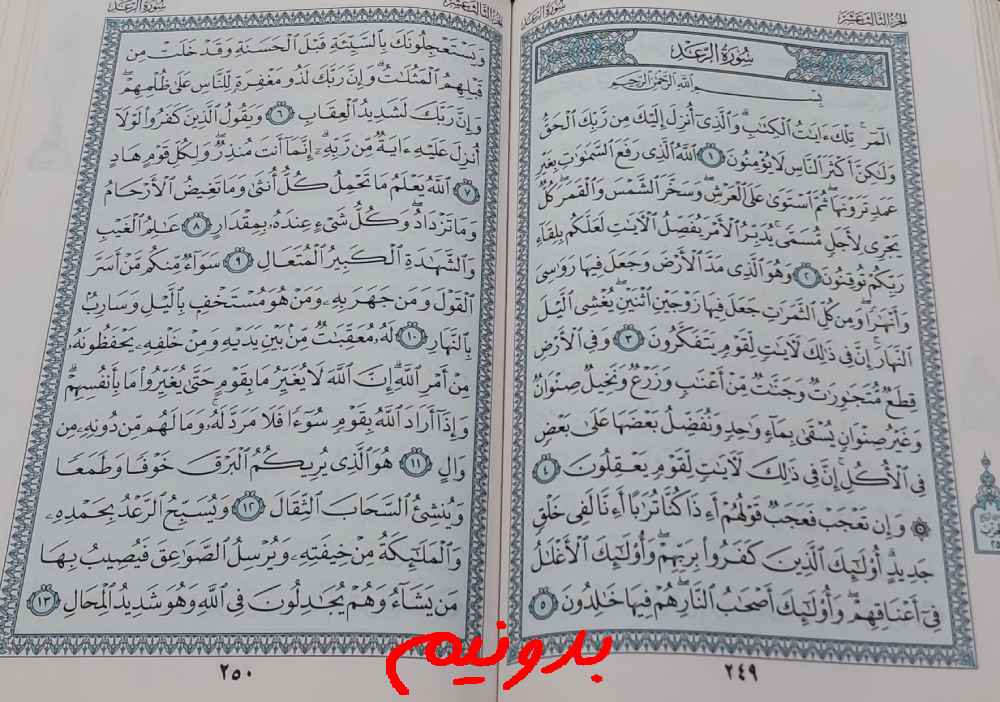 الجزء الثالث عشر
سورة الرعد
سُورَةُ الرَّعْدِ
بِسْمِ اللَّهِ الرَّحْمَٰنِ الرَّحِيمِ
الٓمٓر ۚ تِلْكَ ءَايَٰتُ الْكِتَٰبِ ۗ وَالَّذِىٓ أُنزِلَ إِلَيْكَ مِن رَّبِّكَ الْحَقُّ
وَلَٰكِنَّ أَكْثَرَ النَّاسِ لَا يُؤْمِنُونَ ١ اللَّهُ الَّذِى رَفَعَ السَّمَٰوَٰتِ بِغَيْرِ
عَمَدٍ تَرَوْنَهَا ۖ ثُمَّ اسْتَوَىٰ عَلَى الْعَرْشِ ۖ وَسَخَّرَ الشَّمْسَ وَالْقَمَرَ ۖ كُلٌّ
يَجْرِى لِأَجَلٍ مُّسَمًّى ۚ يُدَبِّرُ الْأَمْرَ يُفَصِّلُ الْءَايَٰتِ لَعَلَّكُم بِلِقَآءِ
رَبِّكُمْ تُوقِنُونَ ٢ وَهُوَ الَّذِى مَدَّ الْأَرْضَ وَجَعَلَ فِيهَا رَوَٰسِىَ
وَأَنْهَٰرًا ۖ وَمِن كُلِّ الثَّمَرَٰتِ جَعَلَ فِيهَا زَوْجَيْنِ اثْنَيْنِ ۖ يُغْشِى الَّيْلَ
النَّهَارَ ۚ إِنَّ فِى ذَٰلِكَ لَءَايَٰتٍ لِّقَوْمٍ يَتَفَكَّرُونَ ٣ وَفِى الْأَرْضِ
قِطَعٌ مُّتَجَٰوِرَٰتٌ وَجَنَّٰتٌ مِّنْ أَعْنَٰبٍ وَزَرْعٌ وَنَخِيلٌ صِنْوَانٌ
وَغَيْرُ صِنْوَانٍ يُسْقَىٰ بِمَآءٍ وَٰحِدٍ وَنُفَضِّلُ بَعْضَهَا عَلَىٰ بَعْضٍ
فِى الْأُكُلِ ۚ إِنَّ فِى ذَٰلِكَ لَءَايَٰتٍ لِّقَوْمٍ يَعْقِلُونَ ٤
۞ وَإِن تَعْجَبْ فَعَجَبٌ قَوْلُهُمْ أَءِذَا كُنَّا تُرَٰبًا أَءِنَّا لَفِى خَلْقٍ
جَدِيدٍ ۗ أُو۟لَٰٓئِكَ الَّذِينَ كَفَرُوا۟ بِرَبِّهِمْ ۖ وَأُو۟لَٰٓئِكَ الْأَغْلَٰلُ
فِىٓ أَعْنَاقِهِمْ ۖ وَأُو۟لَٰٓئِكَ أَصْحَٰبُ النَّارِ ۖ هُمْ فِيهَا خَٰلِدُونَ ٥
٢٤٩
الجزء الثالث عشر
سورة الرعد
وَيَسْتَعْجِلُونَكَ بِالسَّيِّئَةِ قَبْلَ الْحَسَنَةِ وَقَدْ خَلَتْ مِن
قَبْلِهِمُ الْمَثُلَٰتُ ۗ وَإِنَّ رَبَّكَ لَذُو مَغْفِرَةٍ لِّلنَّاسِ عَلَىٰ ظُلْمِهِمْ ۖ
وَإِنَّ رَبَّكَ لَشَدِيدُ الْعِقَابِ ٦ وَيَقُولُ الَّذِينَ كَفَرُوا۟ لَوْلَآ
أُنزِلَ عَلَيْهِ ءَايَةٌ مِّن رَّبِّهِۦٓ ۗ إِنَّمَآ أَنتَ مُنذِرٌ ۖ وَلِكُلِّ قَوْمٍ هَادٍ
٧ اللَّهُ يَعْلَمُ مَا تَحْمِلُ كُلُّ أُنثَىٰ وَمَا تَغِيضُ الْأَرْحَامُ
وَمَا تَزْدَادُ ۖ وَكُلُّ شَىْءٍ عِندَهُۥ بِمِقْدَارٍ ٨ عَٰلِمُ الْغَيْبِ
وَالشَّهَٰدَةِ الْكَبِيرُ الْمُتَعَالِ ٩ سَوَآءٌ مِّنكُم مَّنْ أَسَرَّ
الْقَوْلَ وَمَن جَهَرَ بِهِۦ وَمَنْ هُوَ مُسْتَخْفٍ بِالَّيْلِ وَسَارِبٌۢ
بِالنَّهَارِ ١٠ لَهُۥ مُعَقِّبَٰتٌ مِّنۢ بَيْنِ يَدَيْهِ وَمِنْ خَلْفِهِۦ يَحْفَظُونَهُۥ
مِنْ أَمْرِ اللَّهِ ۗ إِنَّ اللَّهَ لَا يُغَيِّرُ مَا بِقَوْمٍ حَتَّىٰ يُغَيِّرُوا۟ مَا بِأَنفُسِهِمْ ۗ
وَإِذَآ أَرَادَ اللَّهُ بِقَوْمٍ سُوٓءًا فَلَا مَرَدَّ لَهُۥ ۚ وَمَا لَهُم مِّن دُونِهِۦ مِن
وَالٍ ١١ هُوَ الَّذِى يُرِيكُمُ الْبَرْقَ خَوْفًا وَطَمَعًا
وَيُنشِئُ السَّحَابَ الثِّقَالَ ١٢ وَيُسَبِّحُ الرَّعْدُ بِحَمْدِهِۦ
وَالْمَلَٰٓئِكَةُ مِنْ خِيفَتِهِۦ وَيُرْسِلُ الصَّوَٰعِقَ فَيُصِيبُ بِهَا
مَن يَشَآءُ وَهُمْ يُجَٰدِلُونَ فِى اللَّهِ وَهُوَ شَدِيدُ الْمِحَالِ ١٣
٢٥٠
بدونیم